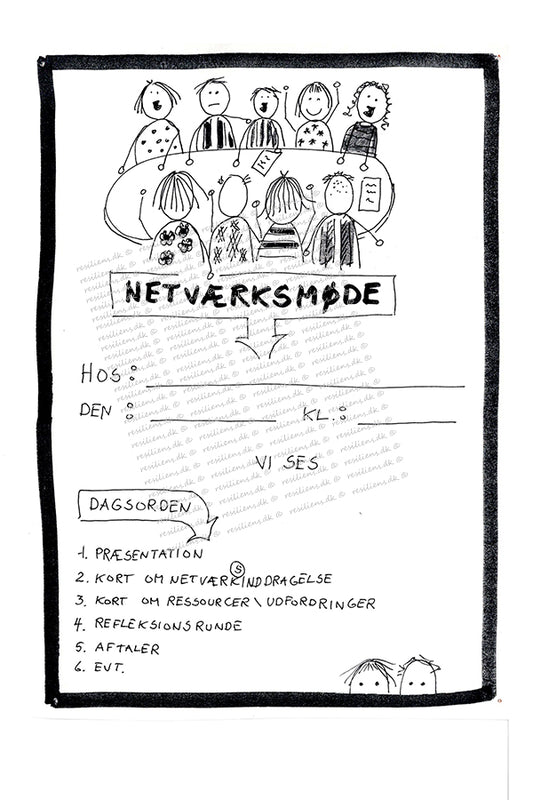 NETVÆRKSMØDE
HOS:
DEN : KL.:
VI SES
DAGSORDEN
1. PRÆSENTATION
2. KORT OM NETVÆRKSINDDRAGELSE
3. KORT OM RESSOURCER\UDFORDRINGER
4. REFLEKSIONSRUNDE
5. AFTALER
6. EVT.
resiliens.dk ©